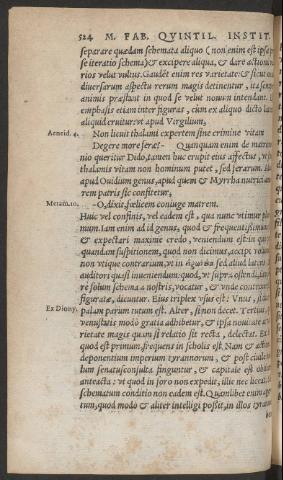 524 M. FAB. QVINTIL. INSTIT.
separare quædam schemata aliquo (non enim est ipsa p
se iteratio schema) & excipere aliqua, & dare actioni
rios velut vultus. Gaudet enim res varietate: & sicut
diuersarum aspectu rerum magis detinentur, ita semper
animis præstant in quod se velut nouum intendant.
emphasis etiam inter figuras, cùm ex aliquo dicto
aliquid eruitur: vt apud Virgilium,
Aeneid. 4. Non licuit thalami expertem sine crimine vitam
Degere more feræ? - Quanquam enim de matrim
nio queritur Dido, tamen huc erupit eius affectus, vt
thalamis vitam non hominum putet, sed ferarum.
apud Ouidium genus, apud quem & Myrrha nutrici
rem patris sic confitetur,
Metam. 10. -O, dixit, fœlicem coniuge matrem.
Huic vel confinis, vel eadem est, qua nunc vtimur
num. Iam enim ad id genus, quod & frequentissimum
& expectari maximè credo, veniendum est: in quo
quandam suspitionem, quod non dicimus, accipi volu
non vtique contrarium, vt in sed aliud
auditori quasi inueniendum: quod, vt supra ostendi, iam
rè solum schema à nostris vocatur, & vnde controuer
figuratæ, dicuntur. Eius triplex vsus est: Vnus, si
Ex Diony. palam parum tutum est. Alter, si non decet. Tertius,
venustatis modò gratia adhibetur, & ipsa nouitate
rietate magis quàm si relatio sit recta, delectat. Ex
quod est primum, frequens in scholis est. Nam &
deponentium imperium tyrannorum, & post
lum senatusconsulta finguntur, & capitale est
anteacta: vt quod in foro non expedit, illic nec liceat.
schematum conditio non eadem est. Quamlibet enim
tum, quod modò & aliter intelligi possit, in illos tyran